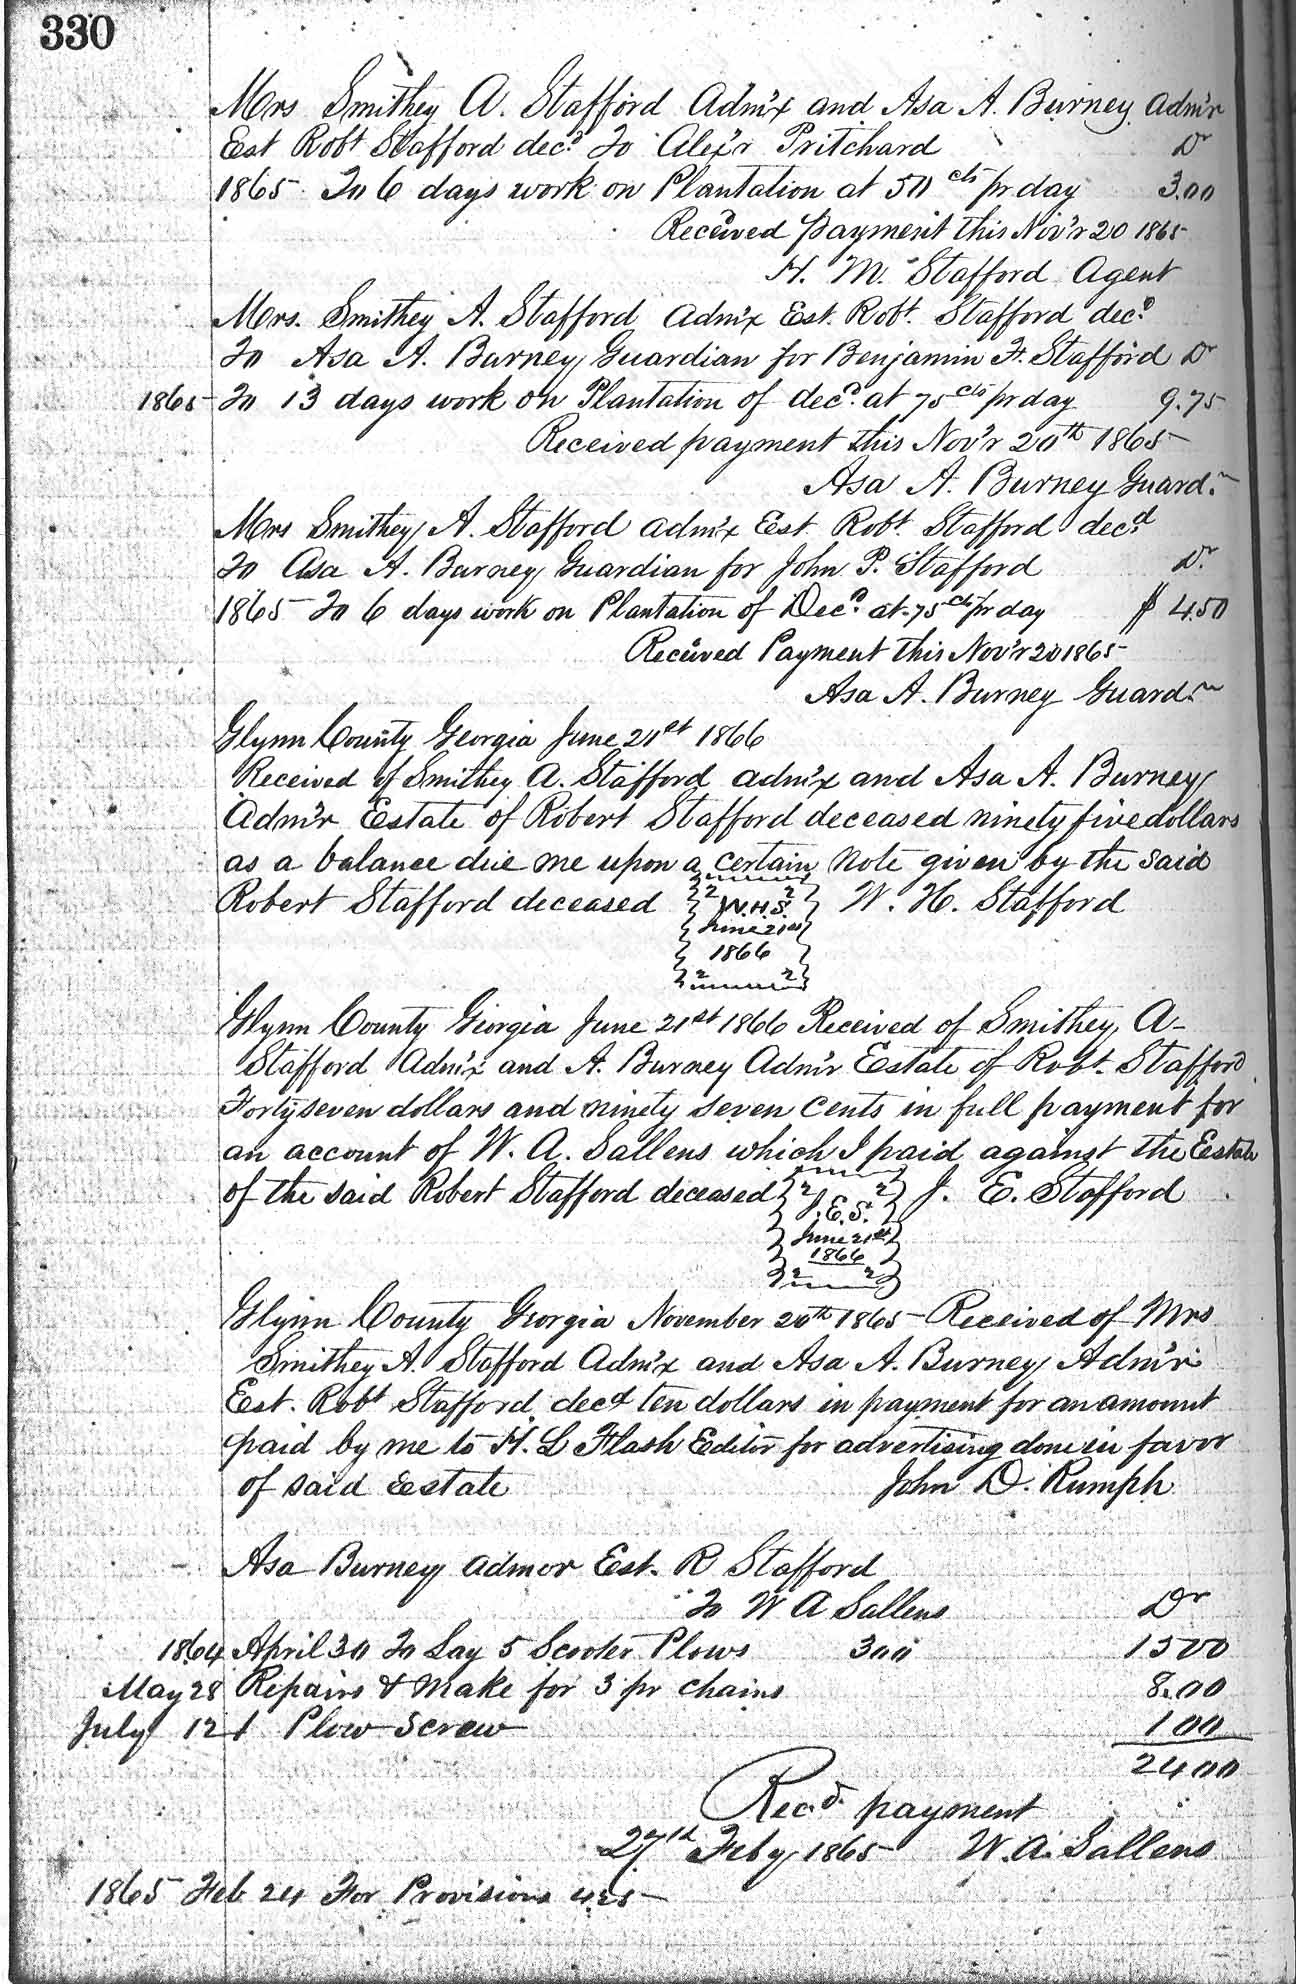 330
Mrs Smithey A. Stafford Adm'x and Asa A. Burney Adm'r
Est Robt Stafford decd To Alex'r Pritchard Dr
1865 To 6 days work on Plantation at 50 cts pr day 3.00
Received payment this Nov'r 20 1865
H. M. Stafford Agent
Mrs. Smithey A. Stafford Adm'x Est. Robt. Stafford decd
To Asa A. Burney Guardian for Benjamin F. Stafford Dr
1865 To 13 days work on Plantation of decd. at 75 cts pr day 9.75
Received payment this Nov'r 20th 1865
Asa A. Burney Guard.n
Mrs Smithey A. Stafford adm'x Est. Robt. Stafford decd
To Asa A. Burney Guardian for John P. Stafford Dr.
1865 To 6 days work on Plantation of Decd. at 75 cts pr day $ 4.50
Received Payment this Nov'r 20 1865
Asa A. Burney Guard.n
Glynn County Georgia June 21st 1866
Received of Smithey A. Stafford adm'x and Asa A. Burney
Adm'r Estate of Robert Stafford deceased ninety five dollars
as a balance due me upon a certain note given by the said
Robert Stafford deceased W. H. Stafford
W.H.S.
June 21st
1866
Glynn County Georgia June 21st 1866 Received of Smithey A
Stafford Adm'x and A. Burney Adm'r Estate of Robt. Stafford
Forty seven dollars and ninety seven cents in full payment for
an account of W. A. Sallens which I paid against the Estate
of the said Robert Stafford deceased J. E. Stafford
J.E.S.
June 21st
1866
Glynn County Georgia November 20th 1865 Received of Mrs
Smithey A. Stafford Adm'x and Asa A. Burney Adm'r
Est. Robt Stafford decd ten dollars in payment for an amount
paid by me to H. L Flash Editor for advertising done in favor
of said Estate John D. Rumph
Asa Burney admor Est. R Stafford
To W A Sallens Dr
1864 April 30 To Lay 5 Scooter Plows 300 1500
May 28 Repairs & Make for 3 pr chains 8.00
July 12 1 Plow Screw 100
2400
Recd. payment
27th Feby 1865 W. A. Sallens
1865 Feb 24 For Provisions 425